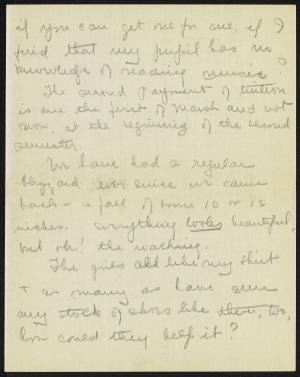 if you can get me for one, if I
find that my pupil has no
knowledge of reading music?
The second payment of tuition
is due the first of March and not
now, at the beginning of the second
semester.
We have had a regular
blizzard ever since we came
back - a fall of some 10 or 12
inches. Everything looks beautiful,
but oh! the walking.
The girls all like my skirt
+ as many as have seen
my stock of shoes like them, too,
how could they help it?